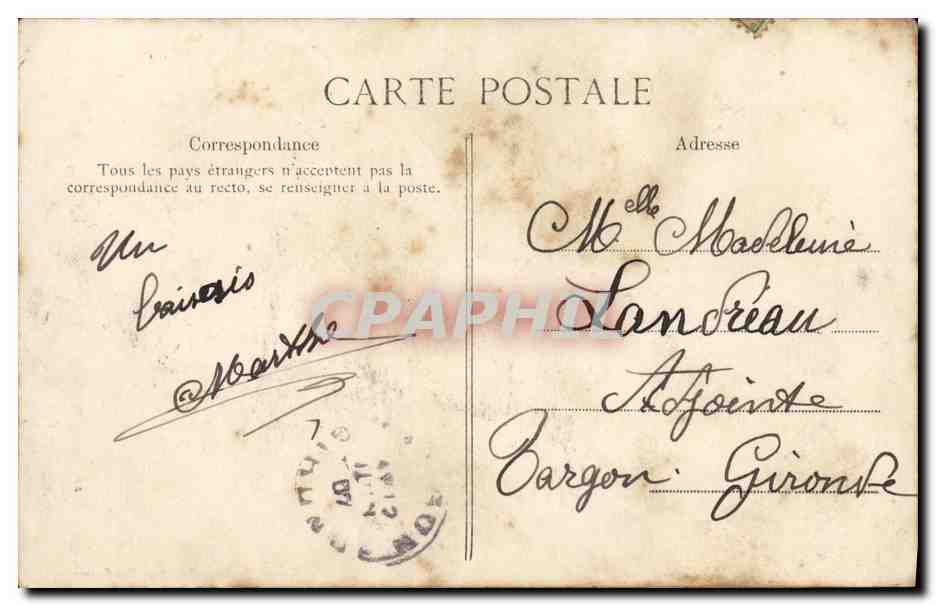 CARTE POSTALE
Correspondance
Tous les pays étrangers n'acceptent pas la
correspondance au recto, se renseigner a la poste.
Un
Marthe
Adresse
Melle Madeleine
Landréau
Adjointe
Targon. Gironde
CPAPHIL